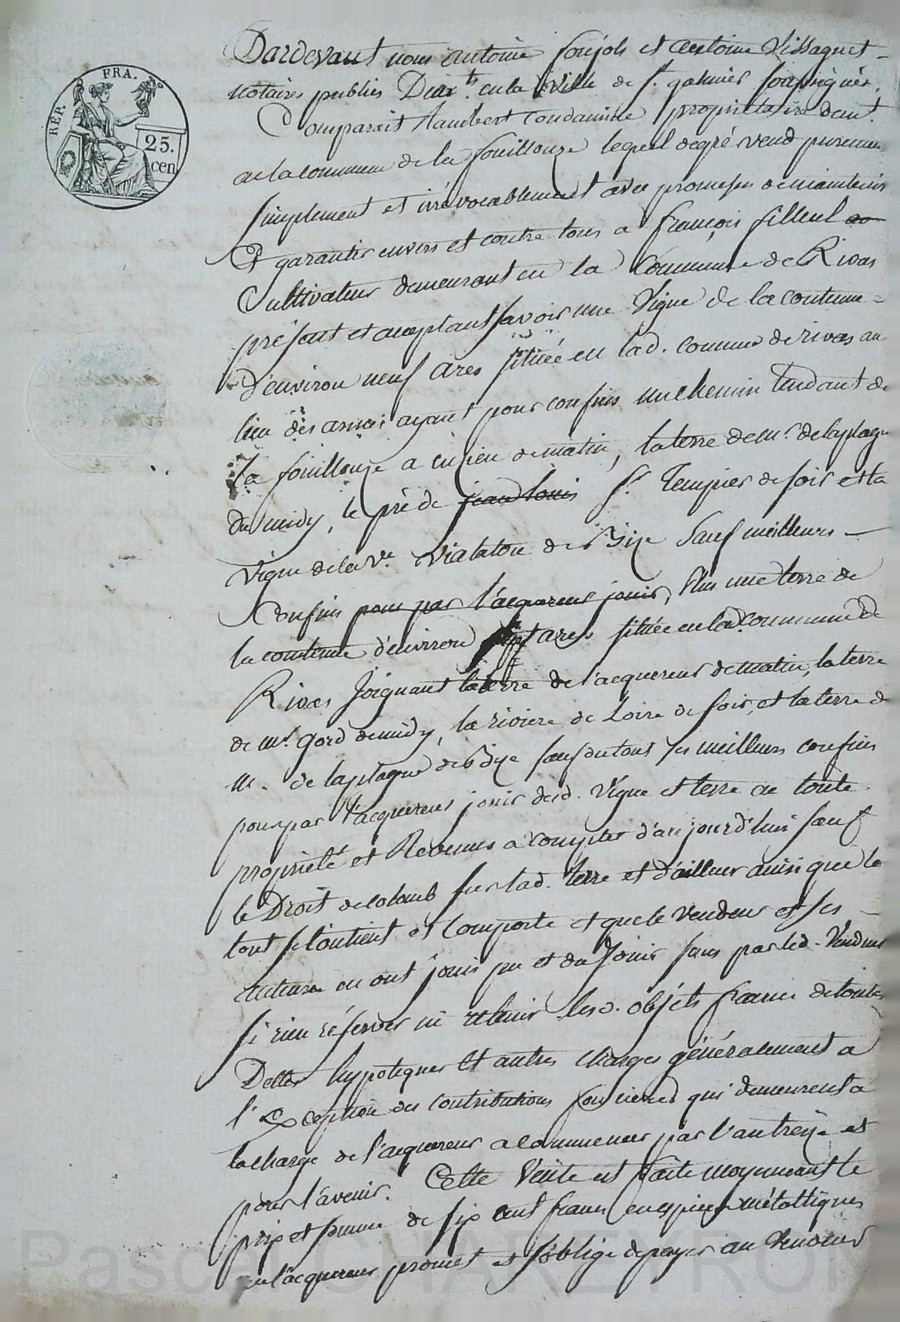 REP. FRA.
25.
cen
Pardevant nous antoine foujols et antoine Vissaguet
notaires publics en la ville de st. galmier soussignés.
Comparait Lambert Condamine propriétaire demt.
en la commune de la fouillouze lequel degré vend purement
simplement et irrévocablement avec promesse de maintenir
Et garantir envers et contre tous a françois filleul
Cultivateur demeurant en la Commune de Rivas
présent et acceptant savoir une Vigne de la contenue
d'environ neuf ares située en lad. commune de rivas au
lieu des ayant pour confins un chemin tendant de
la fouillouze a de matin, la terre de mr. de laplagne
du midy, le pré de jean louis Sr. Tempier de soir et la
vigne de la ve. Vialaton de Bize Sauf meilleurs
Confins pour par l'acquereur jouir, Plus une terre de
la contenue d'environ ares située en lad. commune de
Rivas Joignant la terre de l'acquereur de matin, la terre
de mr. gord de midy, la riviere de Loire de soir, et la terre de
mr. de laplagne de bize sauf du tout ses meilleurs confins
pour par l'acquereur jouir desd. Vigne et terre en toute
propriété et Revenus a compter d'aujourd'hui sauf
le Droit de colomb sur lad. terre et d'ailleur ainsi que le
tout se Contient et Comporte et que le vendeur et ses
auteurs en ont joui pu et du Jouir sans par led. Vendeur
si rien réserver ni retenir lesd. objets francs de toutes
Dettes hypoteques Et autres charges généralement a
l'Exception des contributions foncieres qui demeurent a
la charge de l'acquereur a commencer par l'an treize et
pour l'avenir. Cette Vente est faite moyennant le
prix et somme de six cent francs en espèces métalliques
que l'acquereur promet et s'oblige de payer au Vendeur
Pascal CHAREYRON